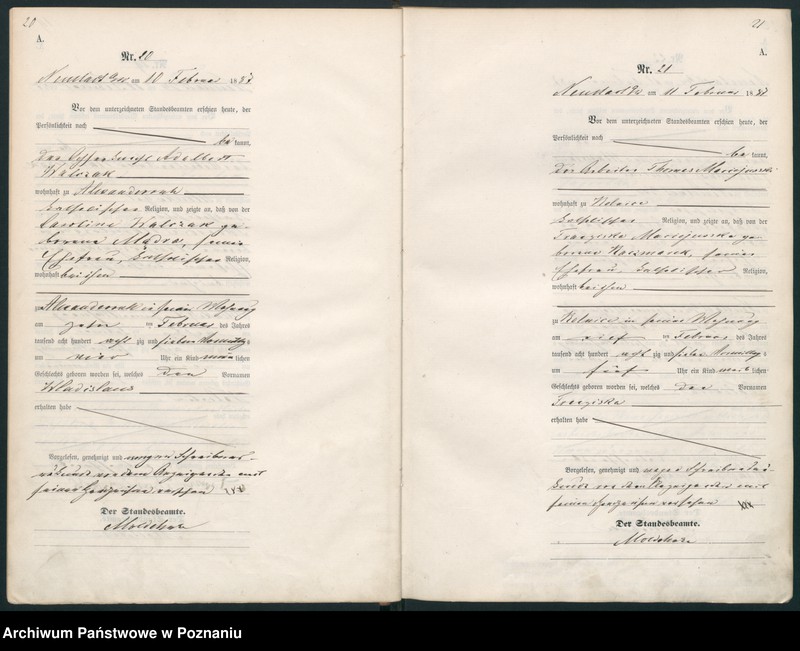 20
A.
Nr. 20
am 10 Februar 1887
Vor dem unterzeichneten Standesbeamten erschien heute, der
Persönlichkeit nach
be kannt,
Walczak
wohnhaft zu
katholischer Religion, und zeigte an, daß von der
Caroline Walczak ge
borene Madra, seiner
Ehefrau, katholischer Religion,
wohnhaft bei ihm
zu in seiner Wohnung
am zehn ten Februar des Jahres
tausend acht hundert acht zig und sieben Vormittags
um vier Uhr ein Kind männ lichen
Geschlechts geboren worden sei, welches den Vornamen
Wladislaus
erhalten habe
Vorgelesen, genehmigt und wegen Schreibens
von dem Anzeigenden mit
seinen Handzeichen versehen xxx
Der Standesbeamte.
21
A.
Nr. 21
am 11 Februar 1887
Vor dem unterzeichneten Standesbeamten erschien heute, der
Persönlichkeit nach
be kannt,
Der Arbeiter Thomas
wohnhaft zu
katholischer Religion, und zeigte an, daß von der
Franziska ge
borene Kaczmarek, seiner
Ehefrau, katholischer Religion,
wohnhaft bei ihm
zu in seiner Wohnung
am elf ten Februar des Jahres
tausend acht hundert acht zig und sieben Vormittags
um fünf Uhr ein Kind weib lichen
Geschlechts geboren worden sei, welches den Vornamen
Franziska
erhalten habe
Vorgelesen, genehmigt und wegen
von dem Anzeigenden mit
seinen Handzeichen versehen xxx
Der Standesbeamte.
Archiwum Państwowe w Poznaniu